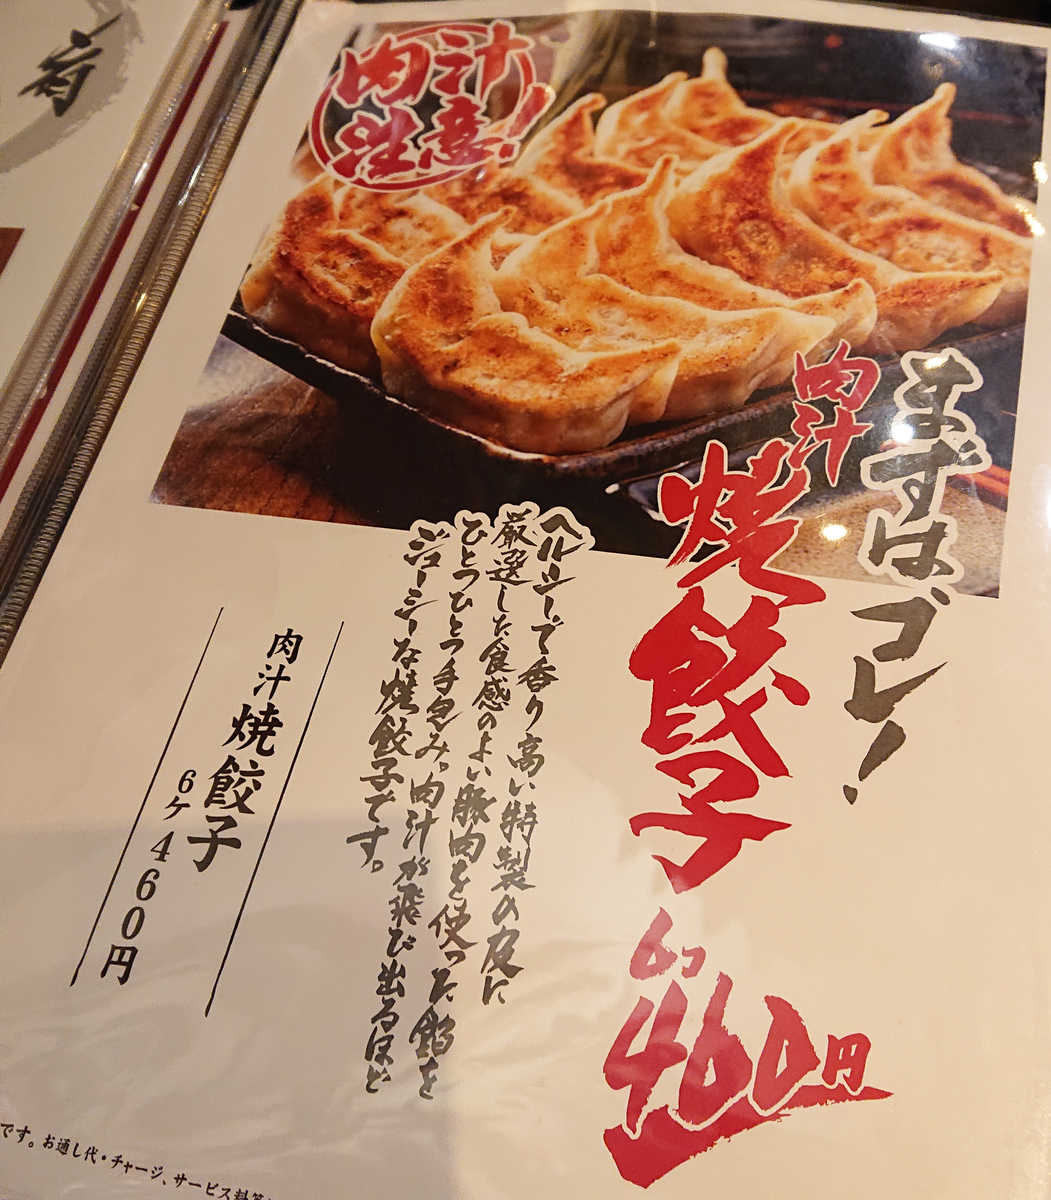 肉汁
注意!
まずはコレ!
肉汁
焼餃子
6つ
460円
ヘルシーで香り高い特製の皮に
厳選した食感のよい豚肉を使った餡を
ひとつひとつ手包み。肉汁が飛び出るほど
ジューシーな焼餃子です。
肉汁焼餃子
6ケ460円
です。お通し代・チャージ、サービス料等